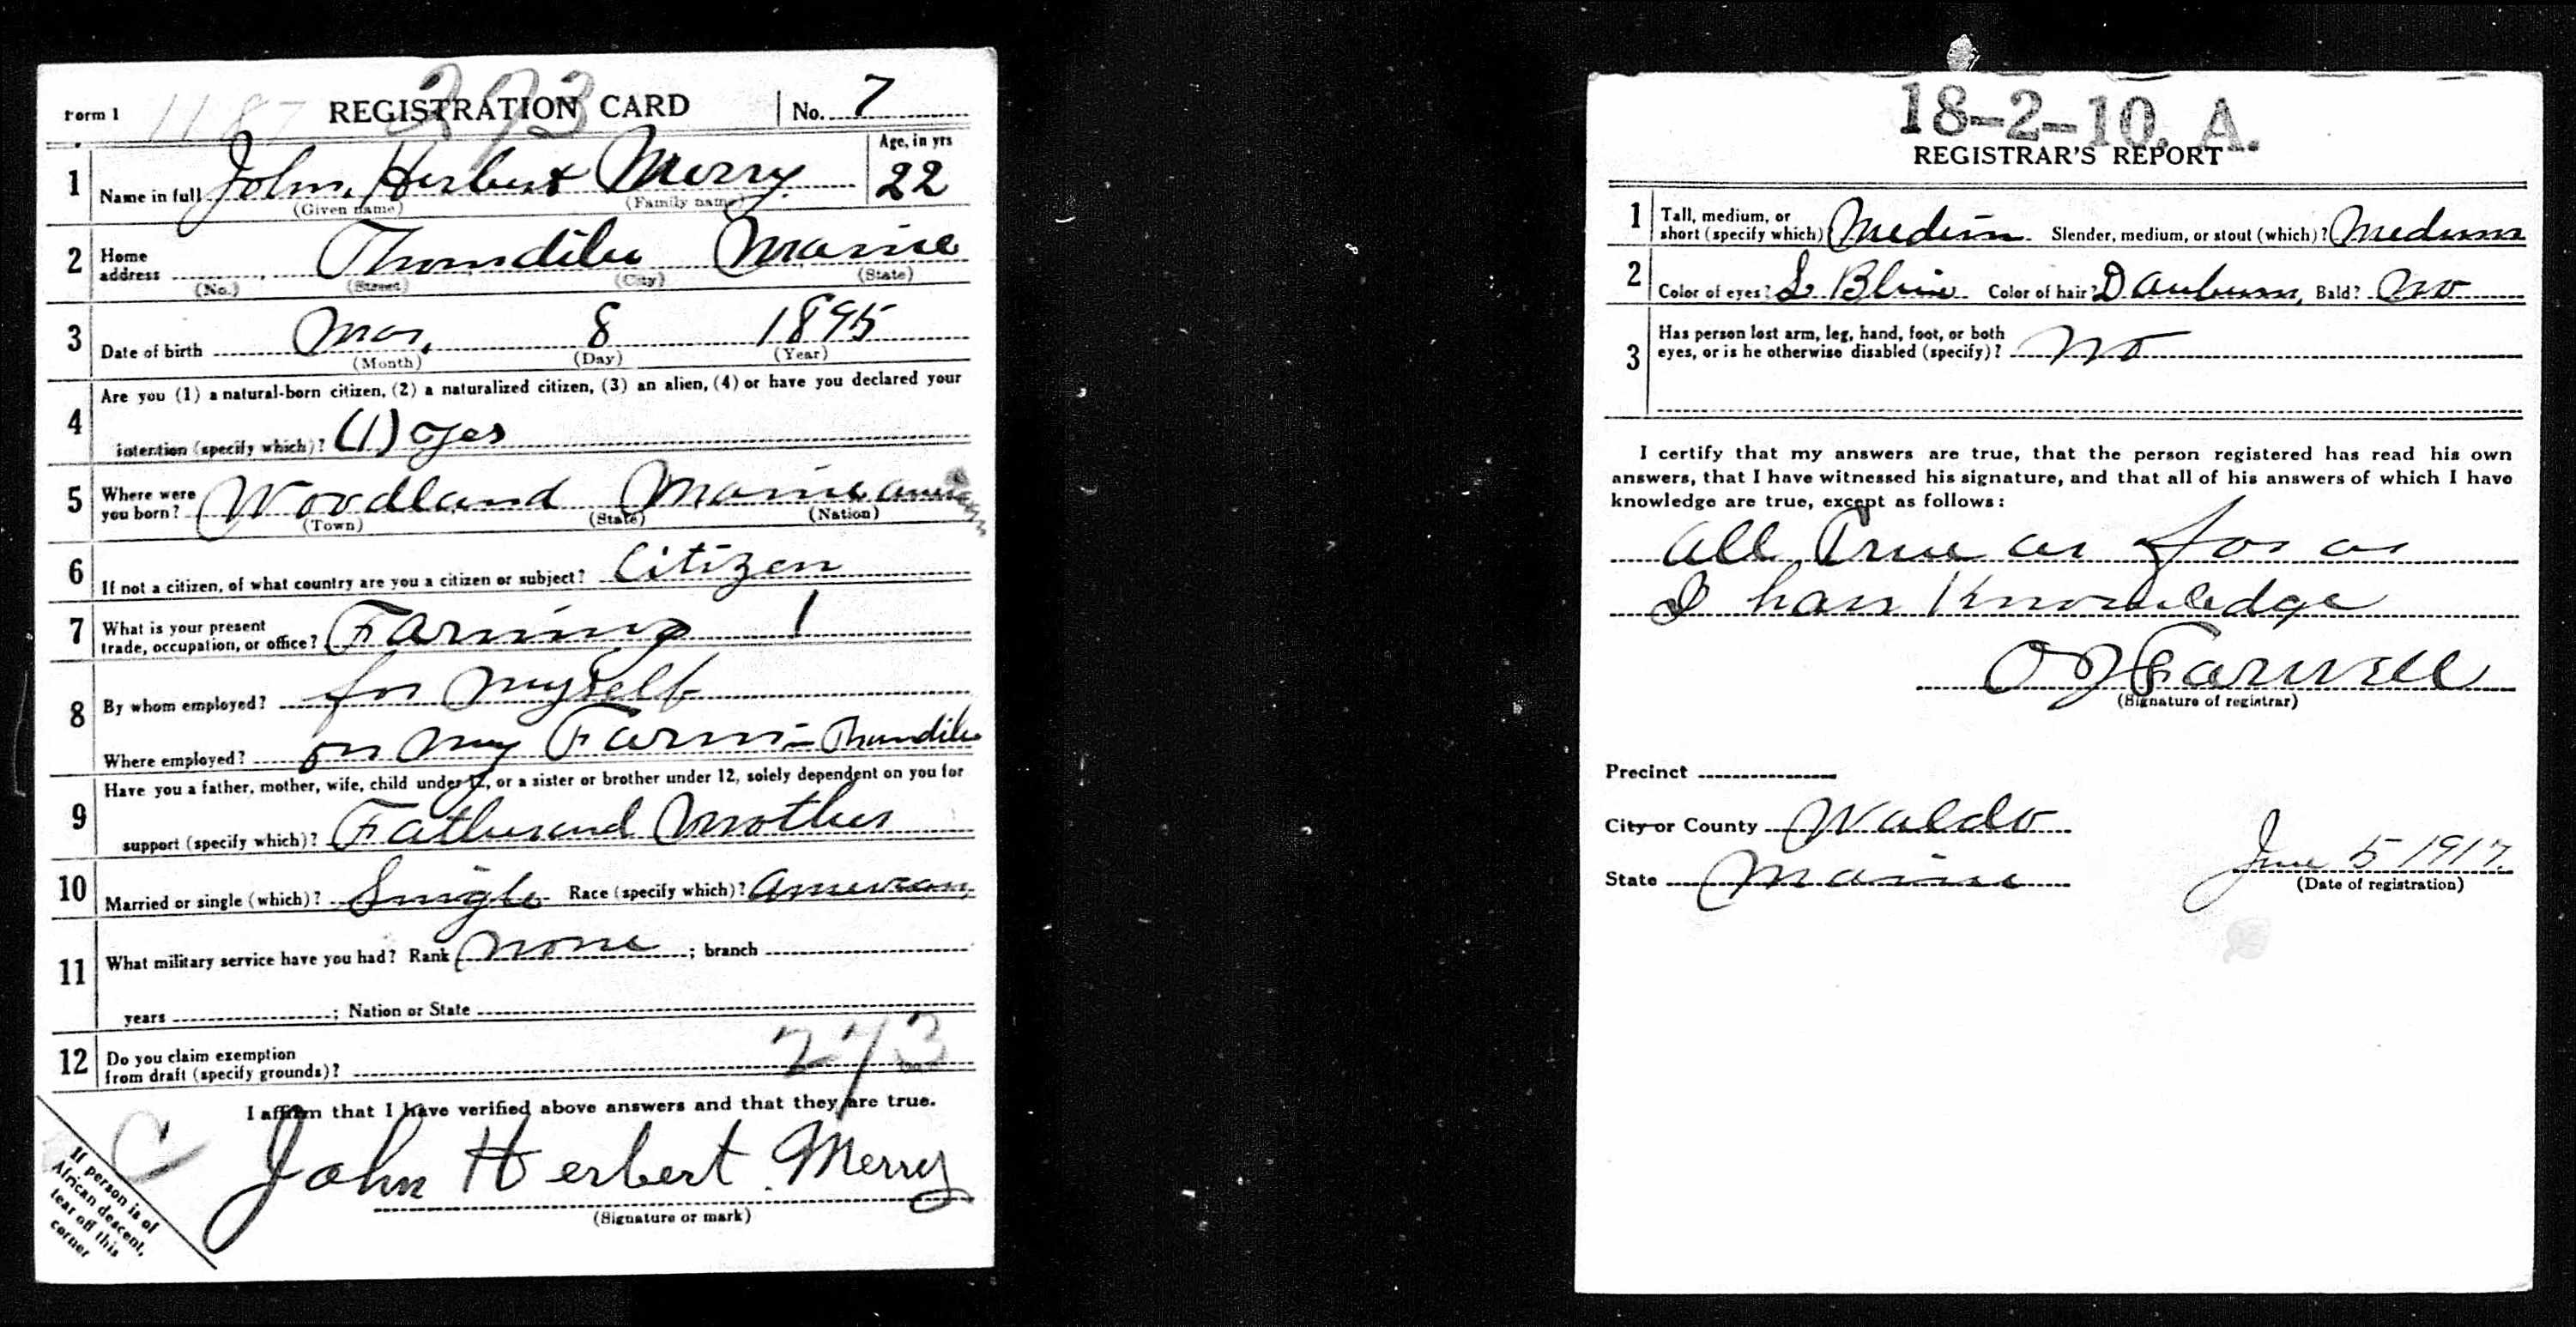 Form 1 1187 REGISTRATION CARD 273 No. 7
1 Name in full John Herbert Merry Age, in yrs 22
(Given name) (Family name)
2 Home address Thorndike Maine
(No.) (Street) (City) (State)
3 Date of birth Mar. 8 1895
(Month) (Day) (Year)
4 Are you (1) a natural-born citizen, (2) a naturalized citizen, (3) an alien, (4) or have you declared your
intention (specify which)? (1) yes
5 Where were you born? Woodland Maine America
(Town) (State) (Nation)
6 If not a citizen, of what country are you a citizen or subject? Citizen
7 What is your present
trade, occupation, or office? Farming 1
8 By whom employed? for myself
Where employed? on my Farm - Thorndike
9 Have you a father, mother, wife, child under 12, or a sister or brother under 12, solely dependent on you for
support (specify which)? Father and Mother
10 Married or single (which)? Single Race (specify which)? American
11 What military service have you had? Rank none ; branch
years ; Nation or State
12 Do you claim exemption
from draft (specify grounds)?
273
I affirm that I have verified above answers and that they are true.
John Herbert Merry
(Signature or mark)
If person is of
African descent,
tear off this
corner
C
18-2-10. A.
REGISTRAR'S REPORT
1 Tall, medium, or
short (specify which) Medium Slender, medium, or stout (which)? Medium
2 Color of eyes? L Blue Color of hair? D auburn Bald? No
3 Has person lost arm, leg, hand, foot, or both
eyes, or is he otherwise disabled (specify)? No
I certify that my answers are true, that the person registered has read his own
answers, that I have witnessed his signature, and that all of his answers of which I have
knowledge are true, except as follows:
all True as far as
I have Knowledge
Farwell
(Signature of registrar)
Precinct
City or County Waldo
State Maine
June 5 1917
(Date of registration)